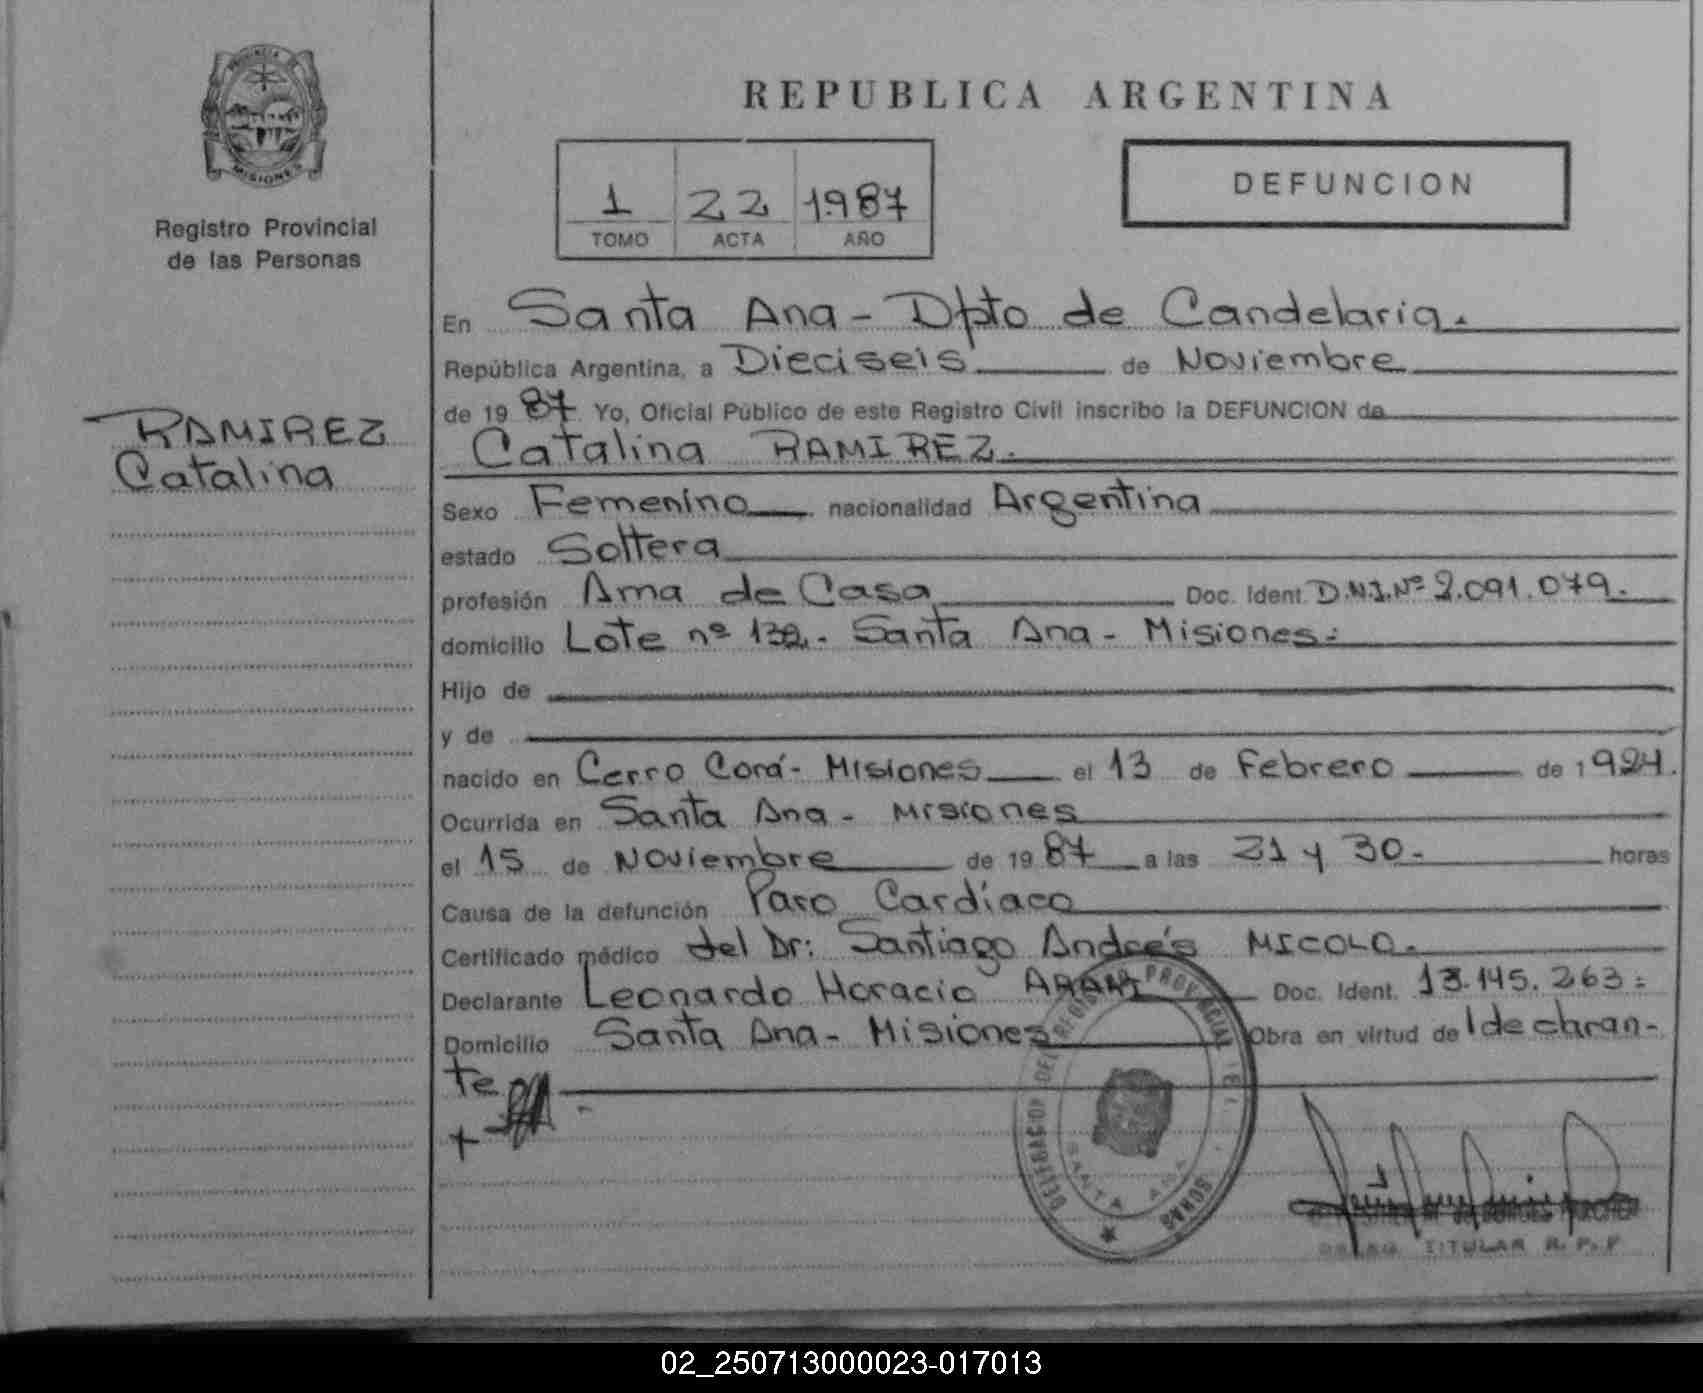 PROVINCIA DE
MISIONES
Registro Provincial
de las Personas
RAMIREZ
Catalina
REPUBLICA ARGENTINA
1 22 1987
TOMO ACTA AÑO
DEFUNCION
En Santa Ana - Dpto de Candelaria.
República Argentina, a Dieciseis de Noviembre
de 19 87 Yo, Oficial Público de este Registro Civil inscribo la DEFUNCION de
Catalina RAMIREZ.
Sexo Femenino nacionalidad Argentina
estado Soltera
profesión Ama de Casa Doc. Ident. D.N.I. Nº 2.091.079.
domicilio Lote nº 132. Santa Ana - Misiones.
Hijo de
y de
nacido en Cerro Corá - Misiones el 13 de Febrero de 1924.
Ocurrida en Santa Ana - Misiones
el 15 de Noviembre de 19 87 a las 21 y 30. horas
Causa de la defunción Paro Cardíaco
Certificado médico del Dr: Santiago Andrés MICOLO.
Declarante Leonardo Horacio Doc. Ident. 13.145.263.
Domicilio Santa Ana - Misiones Obra en virtud de l declaran-
te
DELEGACION DEL REGISTRO PROVINCIAL
SANTA ANA
TITULAR R. P. P.
02_250713000023-017013